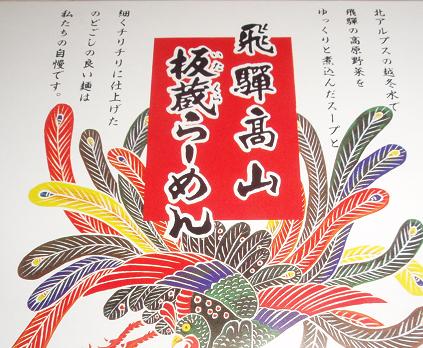 北アルプスの越冬水で
飛騨の高原野菜を
ゆっくりと煮込んだスープと
飛騨髙山
板蔵らーめん
いたくら
細くチリチリに仕上げた
のどごしの良い麺は
私たちの自慢です。